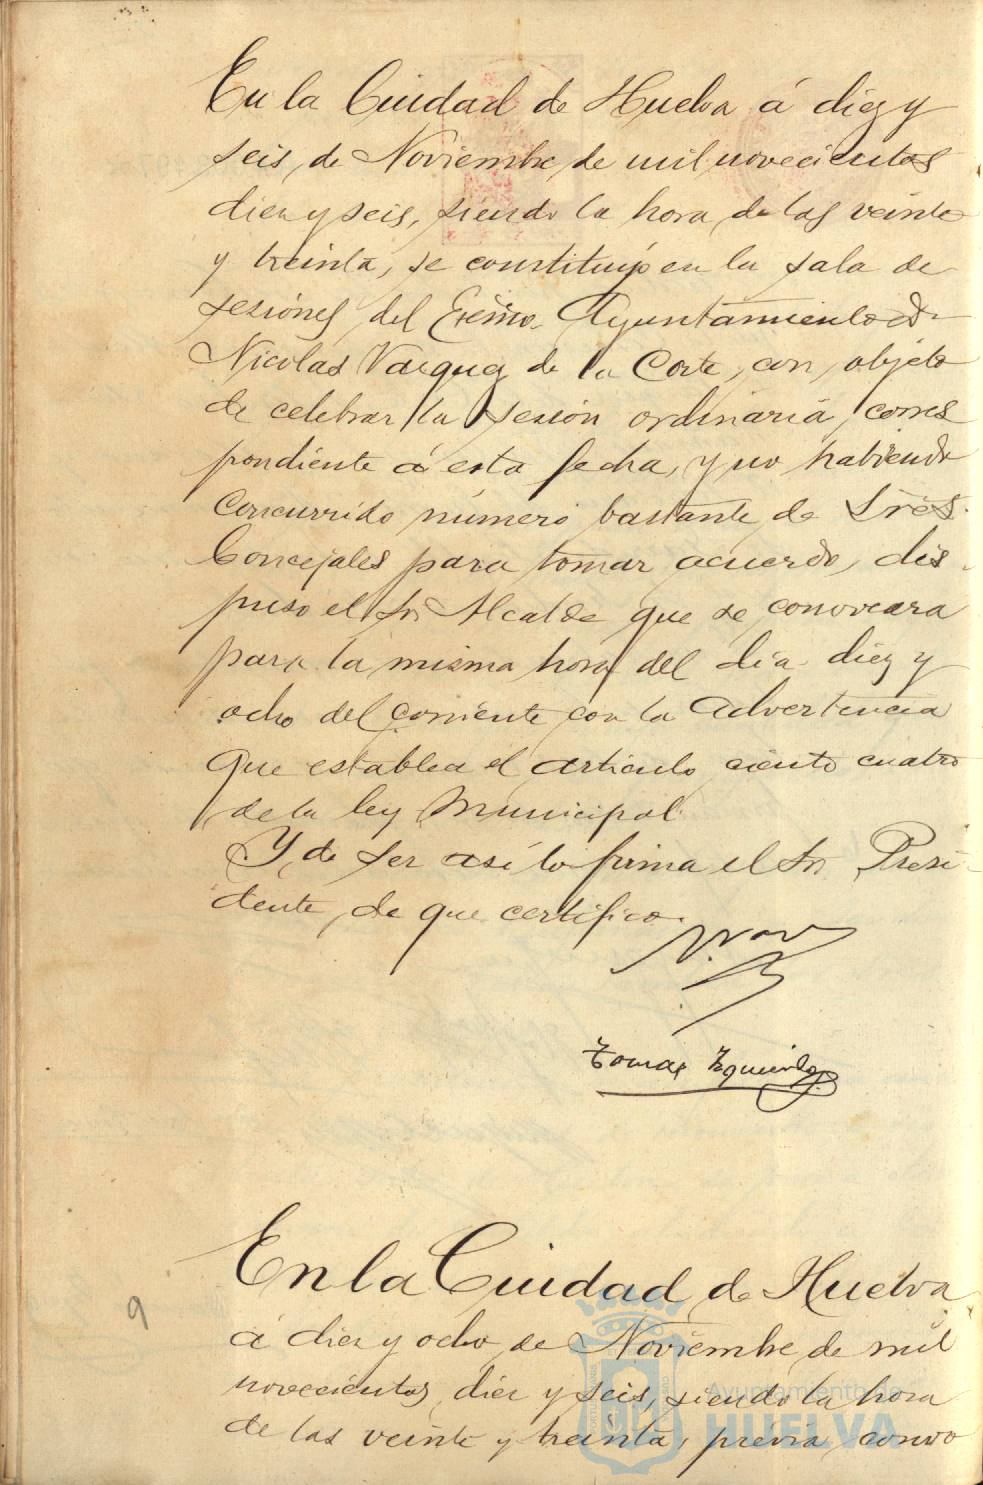 En la Ciudad de Huelva á diez y
seis, de Noviembre, de mil novecientos
diez y seis, siendo la hora, de las veinte
y treinta, se constituyó en la sala de
sesiónes del Excmo. Ayuntamiento d.
Nicolas Vazquez de la Corte, con, objeto
de celebrar la sesión ordinaria, corres
pondiente á esta fecha, y no habiendo
concurrido número bastante, de Sres.
Concejales para tomar acuerdo, dis
puso el Sr. Alcalde que se convocara
para la misma hora del dia diez y
ocho del corriente con la advertencia
que establece el artículo ciento cuatro
de la ley Municipal.
Y, de ser así lo firma el Sr. Presi-
dente, de que certifico.
Tomas Izquierdo
En la Ciudad de Huelva
á diez y ocho, de Noviembre, de mil
novecientos diez y seis, siendo la hora
de las veinte y treinta, prévia, convo
9
Ayuntamiento de
HUELVA